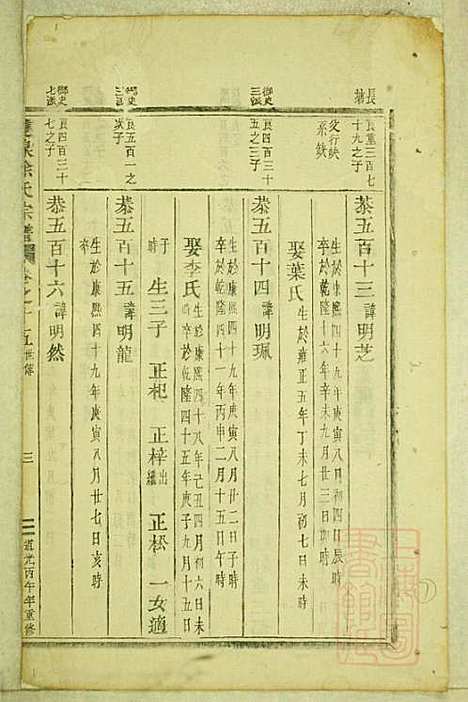 長塘
良臺三百七
十九之子
父行缺
系鈌
恭五百十三諱明芝
生於康熙四十九年庚寅八月初四日辰時
卒於乾隆十六年辛未九月廿三日卯時
娶葉氏生於雍正五年丁未七月初七日未時
御史三派
良四百三十
五之三子
恭五百十四諱明珮
生於康熙四十九年庚寅八月廿二日子時
卒於乾隆四十一年丙申二月十五日午時
娶李氏生於康熙四十八年己丑四月初六日未
時卒於乾隆四十五年庚子九月十五日
子時
生三子 正杞 正梓出繼 正松 一女適
御史三派
良五百一之
次子
恭五百十五諱明龍
生於康熙四十九年庚寅八月廿七日亥時
卒
御史七派
良四百三十
七之子
恭五百十六諱明然
徐氏宗譜
五世傳
三
道光丙午年重修